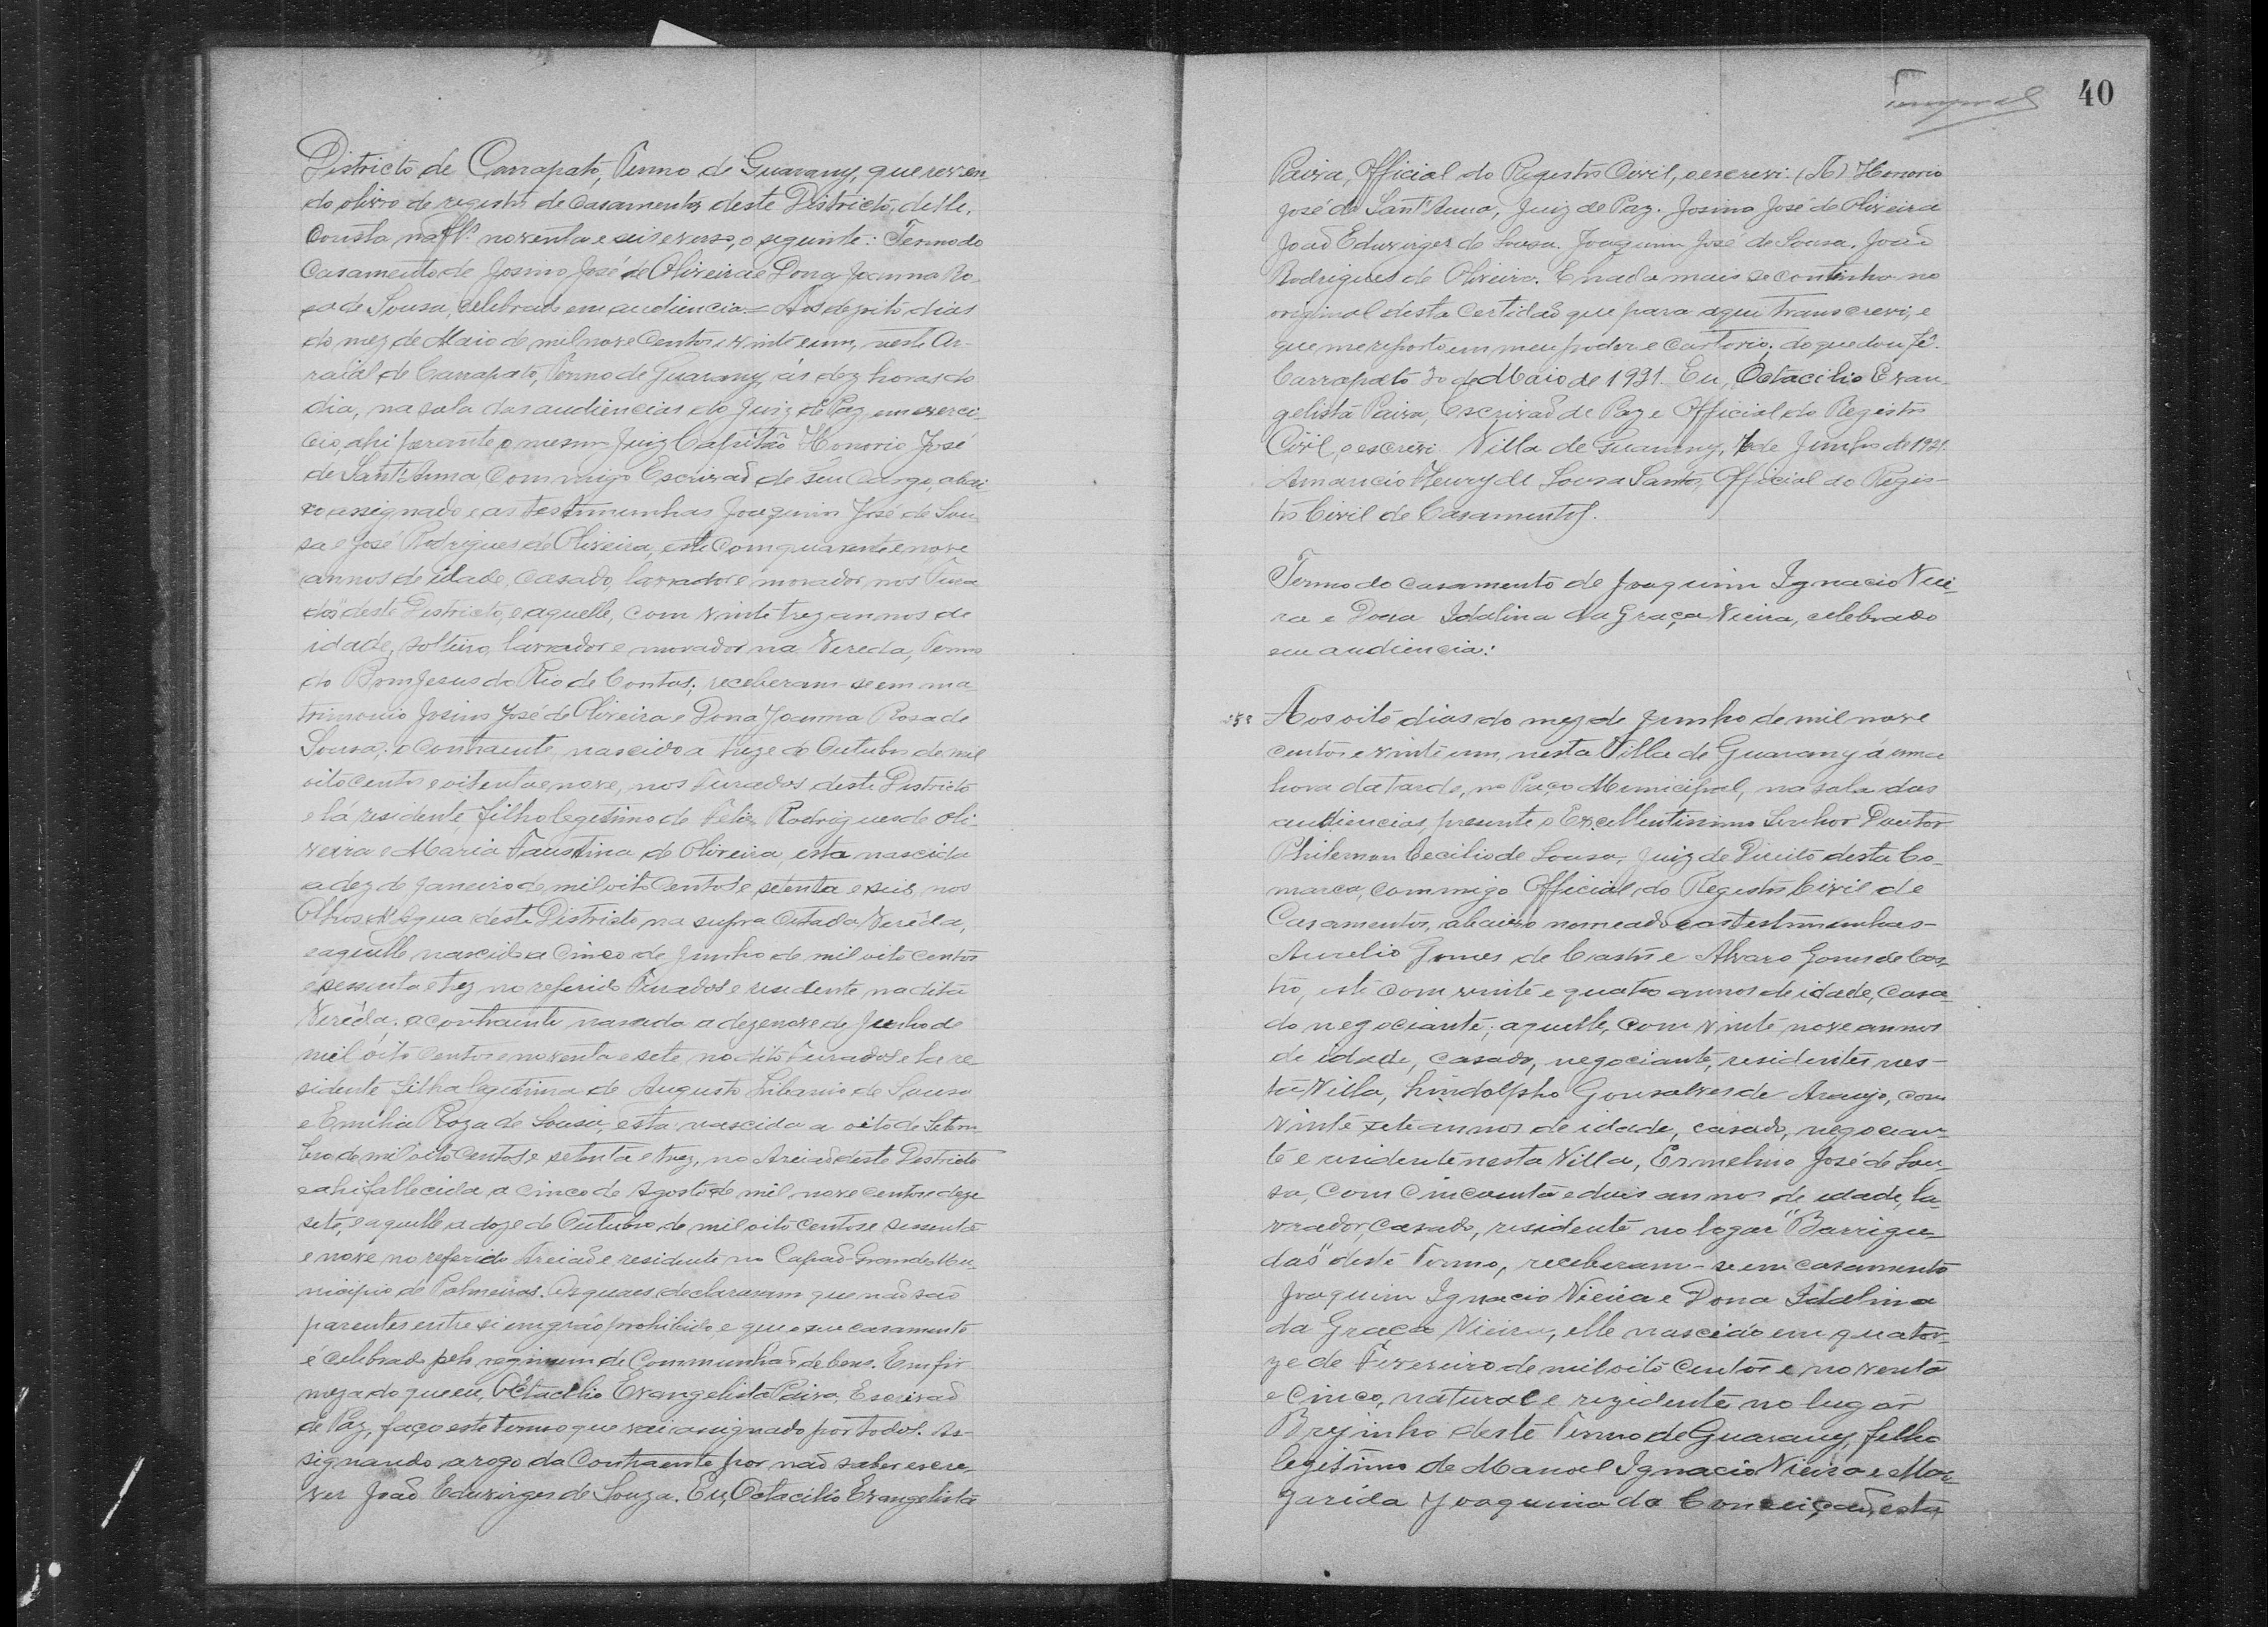 Districto de Carrapato, Termo de Guarany, que reven-
do o livro de registro de casamentos deste Districto, delle,
consta na fls. noventa e seis e verso, o seguinte: Termo do
Casamento de Josino José de Oliveira e Dona Joanna Ro-
sa de Sousa, celebrado em audiencia = Aos dezoito dias
do mez de Maio de mil nove centos e vinte e um, neste Ar-
raial de Carrapato, Termo de Guarany, ás dez horas do
dia, na sala das audiencias do Juiz de Paz em exerci-
cio, ahi perante o mesmo Juiz Capitão Honorio José
de Sant'Anna, commigo Escrivaõ de seu cargo, abai-
xo assignado e as testimunhas Joaquim José de Sou-
sa e José Rodrigues de Oliveira, este com quarenta e nove
annos de idade, casado, lavrador e morador nos Fura
dos" deste Districto, e aquelle, com vinte trez annos de
idade, solteiro, lavrador e morador na Vereda, Termo
do Bom Jesus do Rio de Contas; receberam-se em ma-
trimonio Josino José de Oliveira e Dona Joanna Rosa de
Sousa; o contraente, nascido a treze de Outubro de mil
oito centos e oitenta e nove, nos Furados deste Districto
e lá residente, filho legitimo de Felix Rodrigues de Oli-
veira e Maria Faustina de Oliveira, esta nascida
a dez de Janeiro de mil oito centos e setenta e seis, nos
Olhos d'Agua deste Districto na supra citada Verêda,
e aquelle nascido a cinco de Junho de mil oito centos
e sessenta e trez no referido Furados e residente na dita
Verêda. a contraente nascida a dezenove de Junho de
mil oito centos e noventa e sete, no dito Furados e la re-
sidente, filha legitima de Augusto Libanio de Sousa
e Emilia Roza de Sousa, esta nascida a oito de Setem-
bro de mil oito centos e setenta e trez, no Areiaõ deste Districto
e ahi fallecida a cinco de Agosto de mil nove centos e deze
sete, e aquelle a doze de Outubro de mil oito centos e sessenta
e nove no referido Areiaõ e residente no Capaõ Grande Mu-
nicipio de Palmeiras. Os quaes declararam que naõ saõ
parentes entre si em gráo prohibido e que o seu casamento
é celebrado pelo regimem de Communhaõ de bens. Em fir-
meza do que eu, Octacilio Evangelista Paiva, Escrivaõ
de Paz, faço este termo que vai assignado por todos. As-
signando a rogo da Contraente por naõ saber escre-
ver Joaõ Eduvirges de Souza. Eu, Octacilio Evangelista
40
Paiva, Official do Registro Civil, o escrevi. (A) Honorio
José de Sant'Anna, Juiz de Paz. Josino José de Oliveira
Joaõ Eduvirges de Sousa. Joaquim José de Sousa. Joaõ
Rodrigues de Oliveira. E nada mais se continha no
original desta certidaõ que para aqui transcrevi, e
que me reporto em meu poder e cartorio; do que dou fé.
Carrapato 20 de Maio de 1921. Eu, Octacilio Evan-
gelista Paiva, Escrivaõ de Paz e Official do Registro
Civil, o escrevi. Villa de Guarany, de Junho de 1921.
Amancio Fleury de Sousa Santos, Official do Regis-
tro Civil de Casamentos.
Termo do casamento de Joaquim Ignacio Viei-
ra e Dona Idalina da Graça Vieira, celebrado
em audiencia:
Aos oito dias do mez de Junho de mil nove
centos e vinte um, nesta Villa de Guarany á uma
hora da tarde, no Paço Municipal, na sala das
audiencias, presente o Excellentissimo Senhor Doutor
Philemon Cecilio de Sousa, Juiz de Direito desta Co-
marca, commigo Official do Registro Civil de
Casamentos, abaixo nomeado e as testimunhas-
Aurelio Gomes de Castro e Alvaro Gomes de Cas-
tro, este com vinte e quatro annos de idade, casa-
do negociante; aquelle, com vinte nove annos
de idade, casado, negociante, residentes nes-
ta Villa, Lindolpho Gonsalves de Araujo, com
vinte sete annos de idade, casado, negocian-
te e residente nesta Villa, Ermelino José de Sou-
sa, com cincoenta e dois annos de idade, la-
vrador, casado, residente no logar "Barrigu-
das" deste Termo, receberam-se em casamento
Joaquim Ignacio Vieira e Dona Idalina
da Graça Vieira, elle nascido em quator-
ze de Fevereiro de mil oito centos e noventa
e cinco, natural e rezidente no lugar
Brejinho deste Termo de Guarany, filho
legitimo de Manoel Ignacio Vieira e Mar-
garida Joaquina da Conceiçaõ, esta